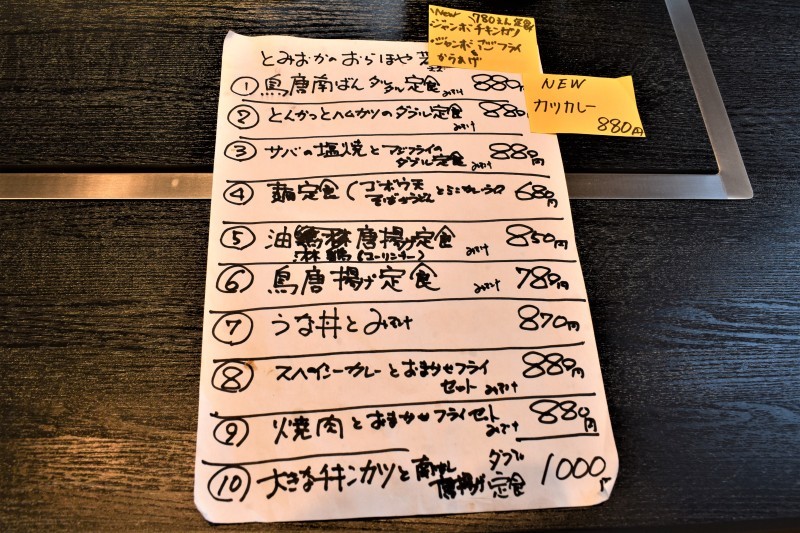 とみおかのおらほや
New 780えん定食
・ジャンボチキンカツ
・ジャンボアジフライ
からあげ
NEW
カツカレー
880円
① 鳥唐南ばんダブル定食 みそ汁 880円
② とんかつとハムカツのダブル定食 880円
みそ汁
③ サバの塩焼とアジフライの 880円
ダブル定食 みそ汁
④ 麺定食(ゴボウ天 680円
そばかうどん
⑤ 油淋鶏 唐揚げ定食 みそ汁 850円
淋鶏(ユーリンチー)
⑥ 鳥唐揚げ定食 みそ汁 780円
⑦ うな丼とみそ汁 870円
⑧ スパイシーカレーとおまかせフライ 880円
セット みそ汁
⑨ 焼肉とおまかせフライセット 880円
みそ汁
⑩ 大きなチキンカツと南ばん ダブル 1000円
唐揚げ 定食